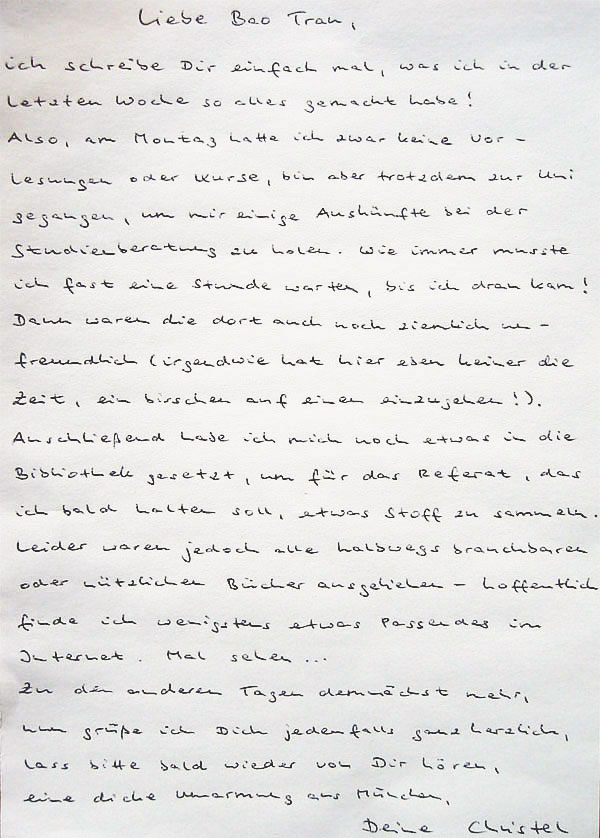 Liebe Bao Tran,
ich schreibe Dir einfach mal, was ich in der
letzten Woche so alles gemacht habe!
Also, am Montag hatte ich zwar keine Vor-
lesungen oder Kurse, bin aber trotzdem zur Uni
gegangen, um mir einige Auskünfte bei der
Studienberatung zu holen. Wie immer musste
ich fast eine Stunde warten, bis ich dran kam!
Dann waren die dort auch noch ziemlich un-
freundlich (irgendwie hat hier eben keiner die
Zeit, ein bisschen auf einen einzugehen!).
Anschließend habe ich mich noch etwas in die
Bibliothek gesetzt, um für das Referat, das
ich bald halten soll, etwas Stoff zu sammeln.
Leider waren jedoch alle halbwegs brauchbaren
oder nützlichen Bücher ausgeliehen - hoffentlich
finde ich wenigstens etwas Passendes im
Internet. Mal sehen...
Zu den anderen Tagen demnächst mehr,
nun grüße ich Dich jedenfalls ganz herzlich,
lass bitte bald wieder von Dir hören,
eine dicke Umarmung aus München,
Deine Christel